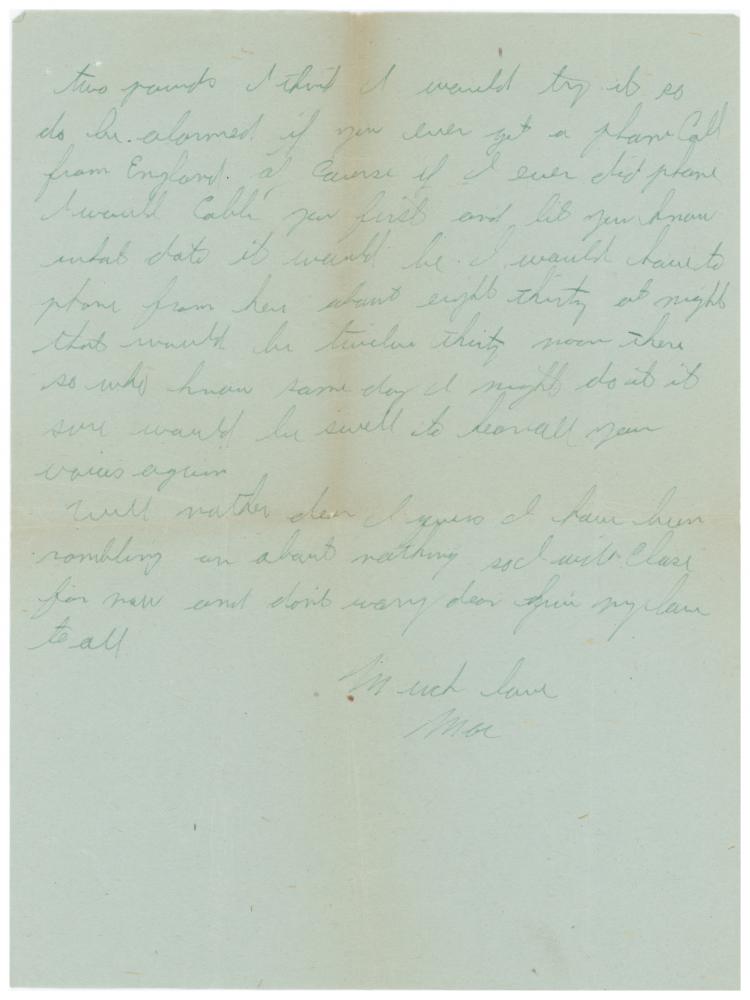 two pounds I think I would try it so
do be. alarmed if you ever get a phone Call
from England. of Course if I ever did phone
I would Cable you first and let you know
what date it would be. I would have to
phone from here about eight thirty at night
that would be twelve thirty noon there
so who know some day I might do it it
sure would be swell to hear all your
voices again
Well mother dear I guess I have been
rambling on about nothing so I will Close
for now and don't worry dear Give my love
to all
Much love
Moe